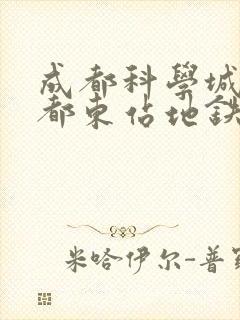 成都科學城
都东佔地鉄
米哈伊尔-普